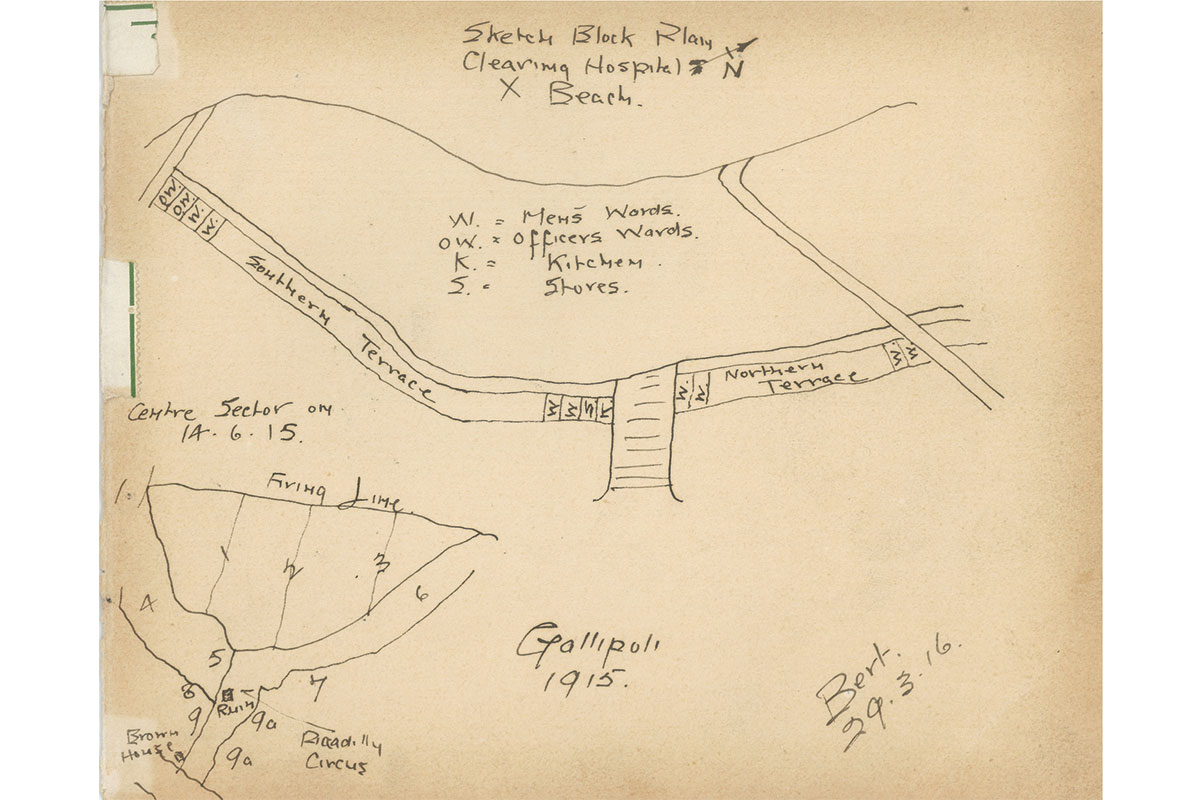 Sketch Block Plan
Clearing Hospital
X Beach.
N
W. = Mens Wards.
OW. = Officers Wards.
K. = Kitchen.
S. = Stores.
OW.
OW.
W.
W.
Southern Terrace
W.
W.
K
W.
W.
Northern
Terrace
W.
W.
Centre Sector on
14.6.15.
Firing Line.
1.
1
2
3
4
5
6
7
8
9
9a
9a
Ruin
Brown
House
Picadilly
Circus
Gallipoli
1915.
Bert.
29.3.16.